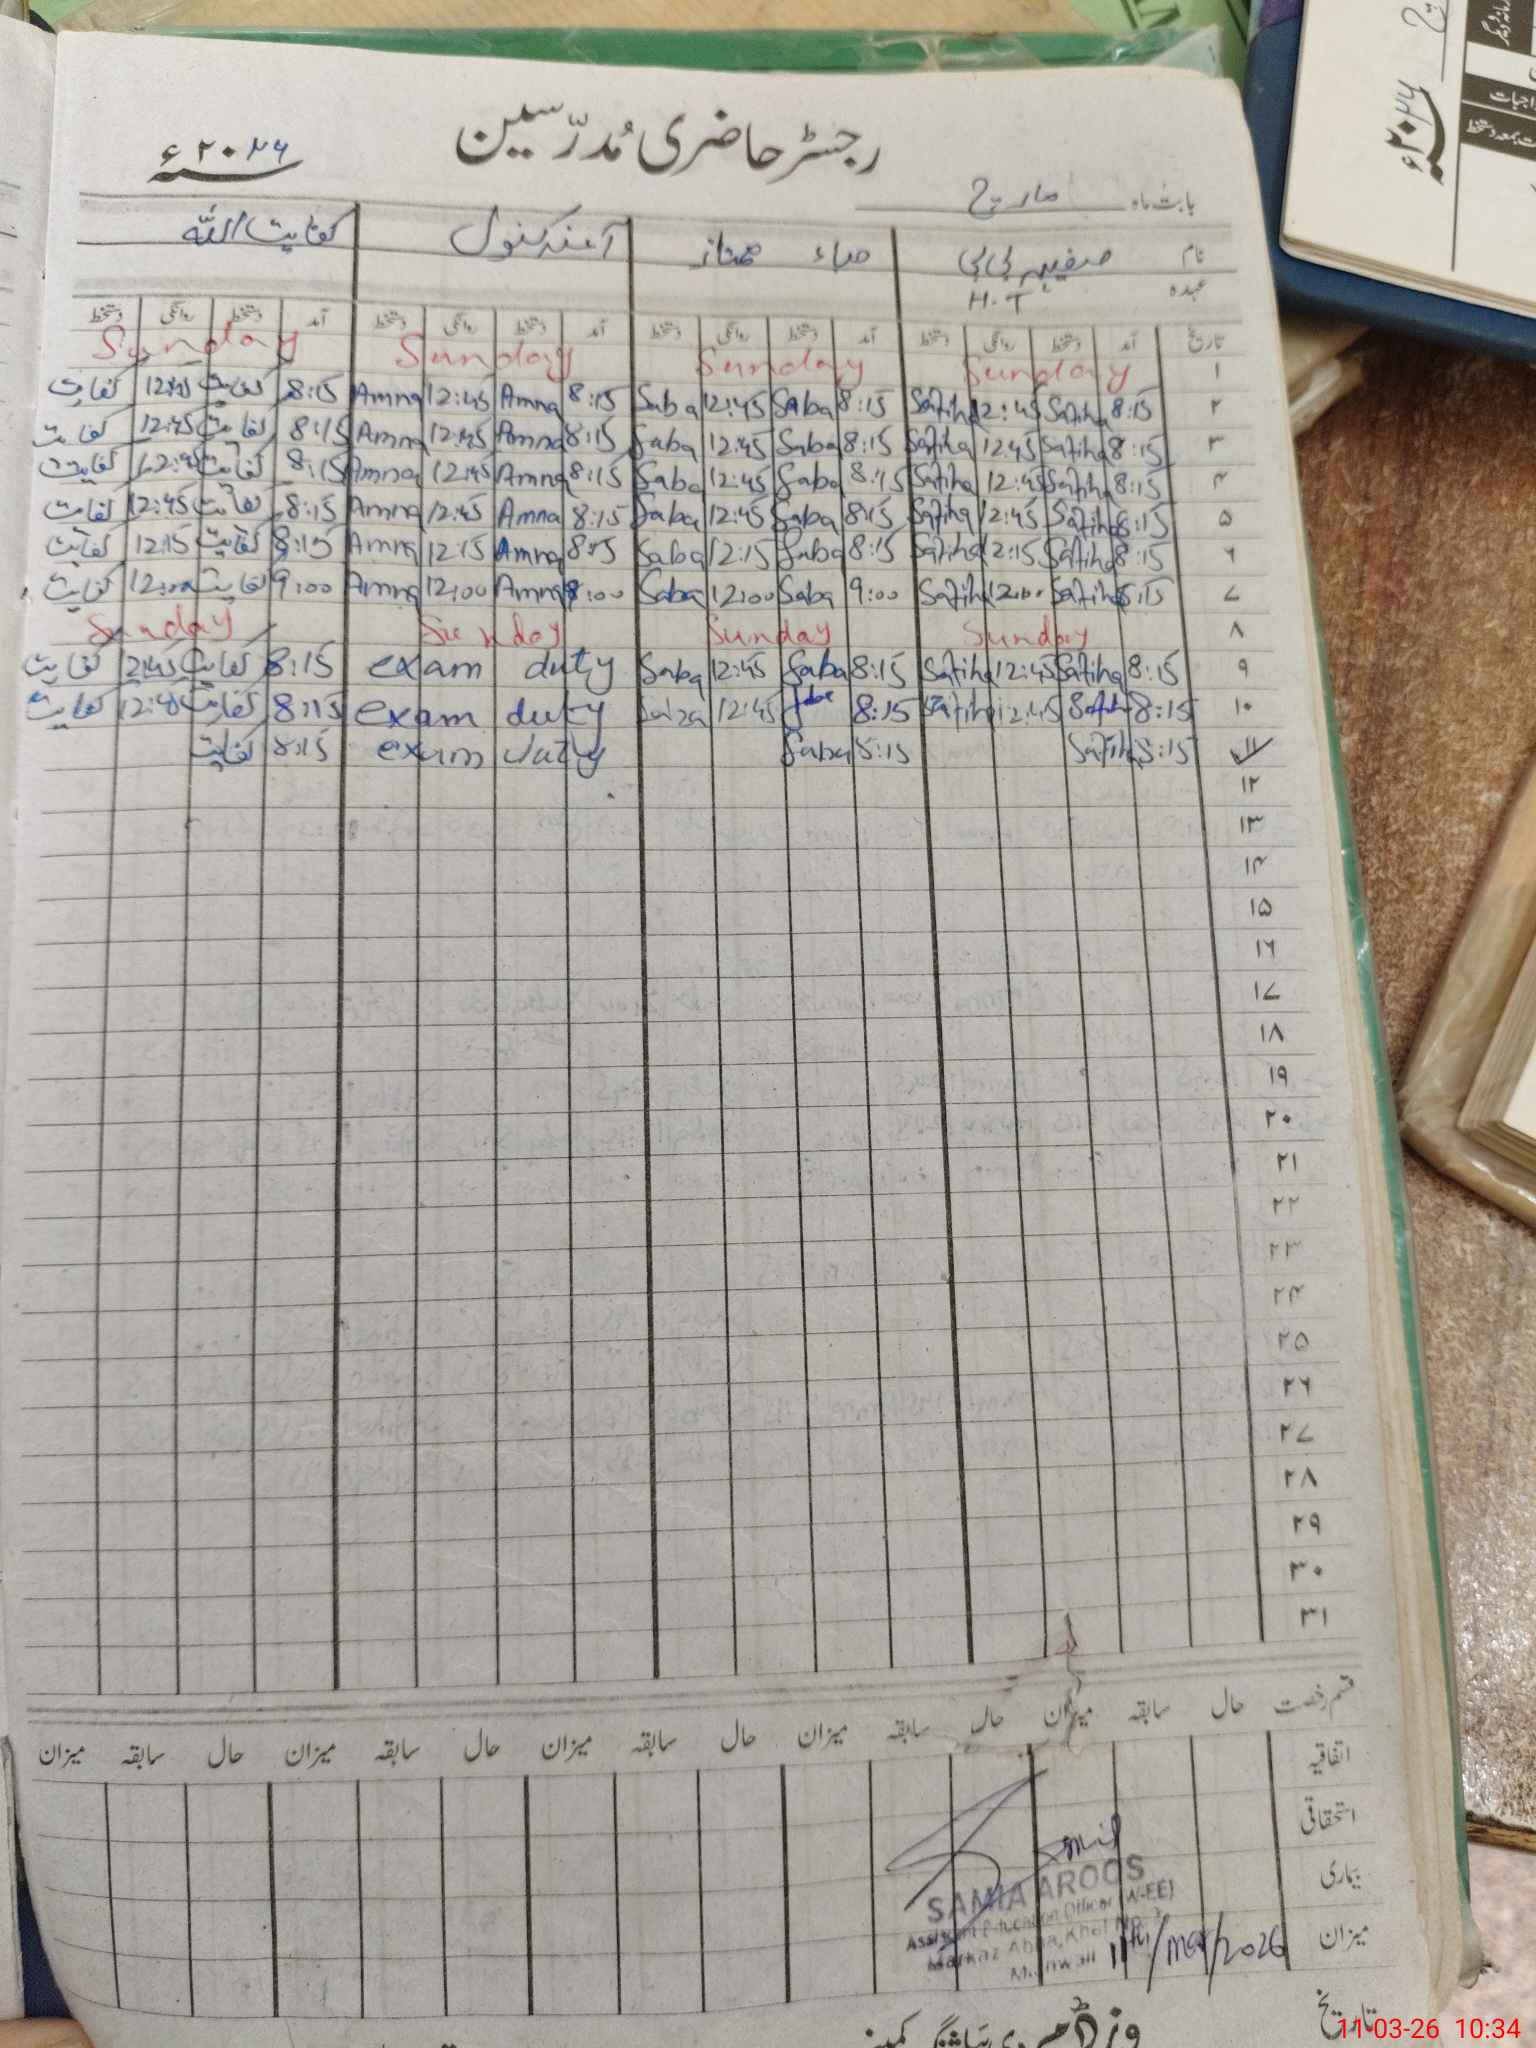 رجسٹر حاضری مُدرّسین
سنہ ۲۰۲۶ء
بابت ماہ مارچ
نام صفیہ بی بی صباء ممتاز آمنہ کنول کفایت اللہ
عہدہ H.T
تاریخ آمد دستخط روانگی دستخط آمد دستخط روانگی دستخط آمد دستخط روانگی دستخط آمد دستخط روانگی دستخط
۱ Sunday Sunday Sunday Sunday
۲ 8:15 Safiha 12:45 Safiha 8:15 Saba 12:45 Saba 8:15 Amna 12:45 Amna 8:15 کفایت 12:45 کفایت
۳ 8:15 Safiha 12:45 Safiha 8:15 Saba 12:45 Saba 8:15 Amna 12:45 Amna 8:15 کفایت 12:45 کفایت
۴ 8:15 Safiha 12:45 Safiha 8:15 Saba 12:45 Saba 8:15 Amna 12:45 Amna 8:15 کفایت 12:45 کفایت
۵ 8:15 Safiha 12:45 Safiha 8:15 Saba 12:45 Saba 8:15 Amna 12:45 Amna 8:15 کفایت 12:45 کفایت
۶ 8:15 Safiha 12:15 Safiha 8:15 Saba 12:15 Saba 8:15 Amna 12:15 Amna 8:15 کفایت 12:15 کفایت
۷ 8:15 Safiha 12:00 Safiha 9:00 Saba 12:00 Saba Amna 12:00 Amna 9:00 کفایت 12:00 کفایت
۸ Sunday Sunday Sunday Sunday
۹ 8:15 Safiha 12:45 Safiha 8:15 Saba 12:45 Saba exam duty 8:15 کفایت 12:45 کفایت
۱۰ 8:15 Safiha 12:45 Safiha 8:15 12:45 exam duty 8:15 کفایت 12:45 کفایت
۱۱ 8:15 Safiha 8:15 Saba exam duty 8:15 کفایت
۱۲
۱۳
۱۴
۱۵
۱۶
۱۷
۱۸
۱۹
۲۰
۲۱
۲۲
۲۳
۲۴
۲۵
۲۶
۲۷
۲۸
۲۹
۳۰
۳۱
قسم رخصت حال سابقہ میزان حال سابقہ میزان حال سابقہ میزان حال سابقہ میزان
اتفاقیہ
استحقاقی
بیماری
میزان
تاریخ
SAMIA AROOS
Assistant Education Officer (W-EE)
Markaz Abba Khel No.
Mianwali
11th/Mar/2026
11-03-26 10:34